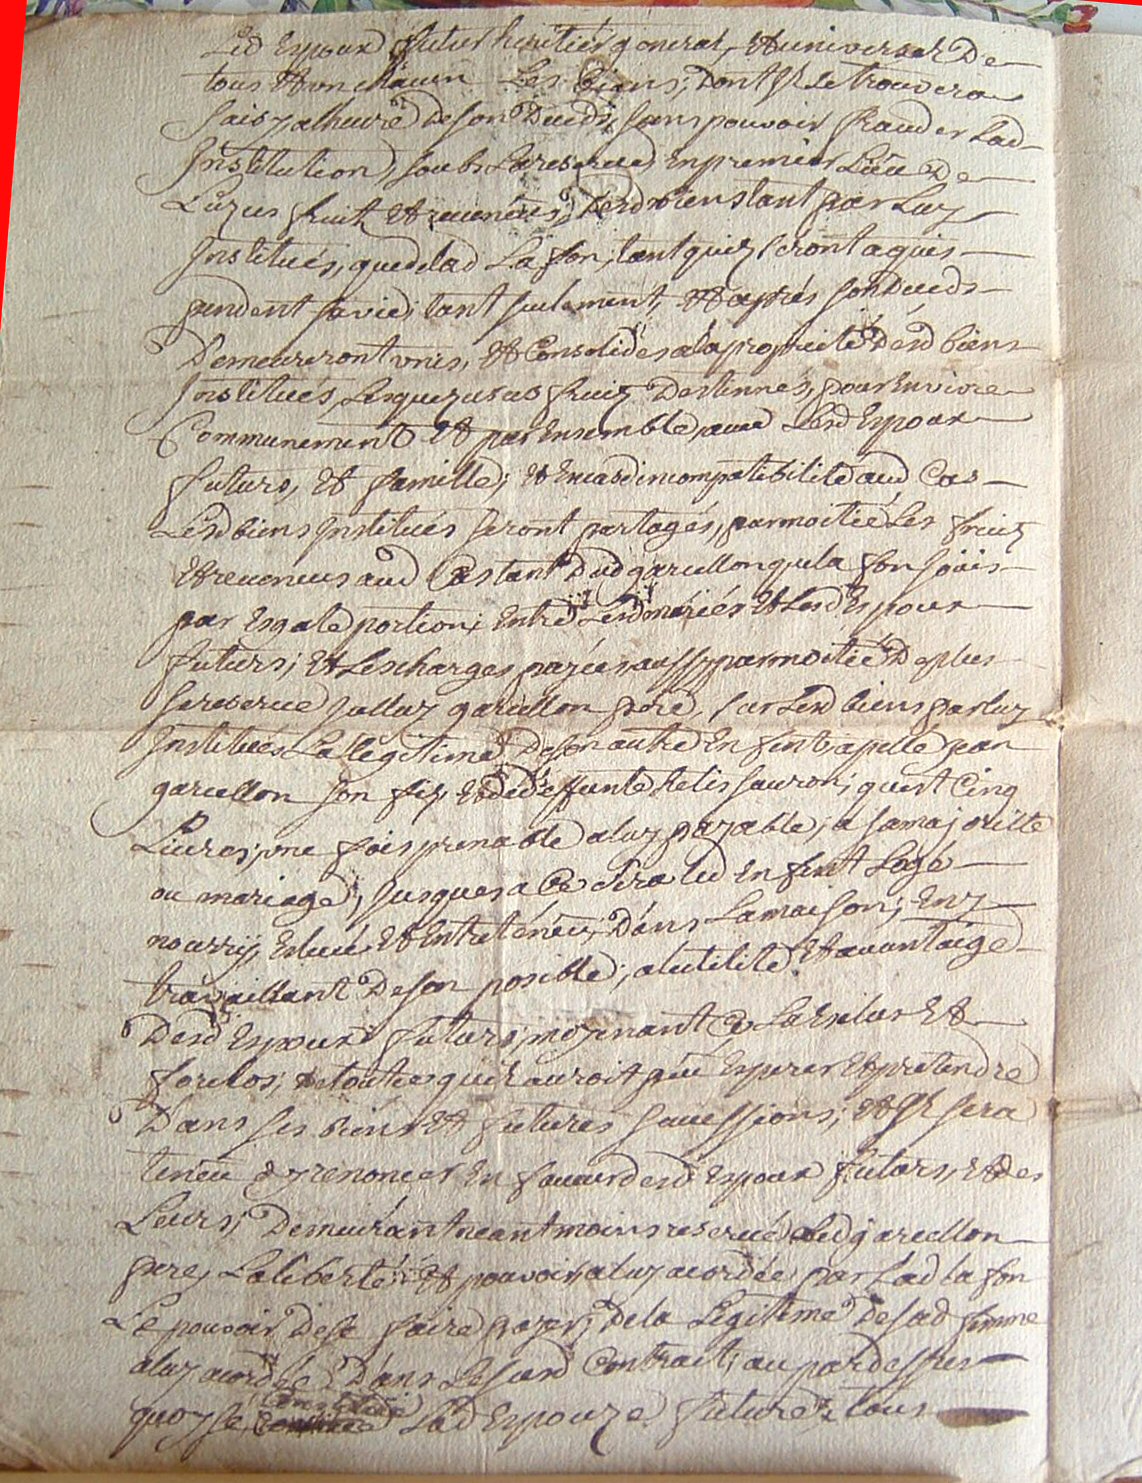 Led Espoux futur heritier general, et universel de
tous et un chacun Les biens, dont Il se trouvera
saisy alheure de son deceds, sans pouvoir frauder Lad
Institution, soubs La reserve, en premier Lieu de
L'uzufruit et revenus, desd biens tant par Luy
Institués, que de lad La fon, tant quilz seront aquis
pendent sa vie, tant seulement, et aprés son deceds
Demeureront unis, et Consolides ala proprieté desd biens
Institués, Lesquez usufruitz destinnés, pour En vivre
Communement et par Ensemble, avec Lesd Espoux
futurs, et famille; et En cas dincompatibilité aud Cas
Lesd biens Institués seront partagés, par moitié Les fruitz
et revenus aud Cas tant dud garcellon que la fon
par Esgale portion, Entre Lesd mariés et Lesd Espoux
futurs; et Les charges payées aussy par moitié De plus
se reserve Led garcellon pere, sur Lesd biens par luy
Institués La legitime de son autre Enfent apellé jean
garcellon son filz et de deffunte sauron; quest Cinq
Livres, une fois prenable a luy payable, a sa majoritté
ou mariage, Jusques a Ce sera led Enfent Logé
nourry, Eslevé et Entretenu, Dans La maison, En y
travaillant De son posible, alutilité et avantaige
Desd Espoux futurs, moyenant Ce La Exclus et
forclos, de toutce quil auroit peu Esperer et pretendre
Dans ses biens et futures successions; et Il sera
teneu d'y renoncer En faveur desd Espoux futurs, et des
Leurs, Demeurant neantmoins reservé aud garcellon
pere, La liberté et pouvoir, a luy acordée par Lad la fon
Le pouvoir de se faire payer, de la Legitime de sad femme
a luy acordée Dans Le susd Contract, au par dessus
quoy se Constitue Lad Espouze future, tous